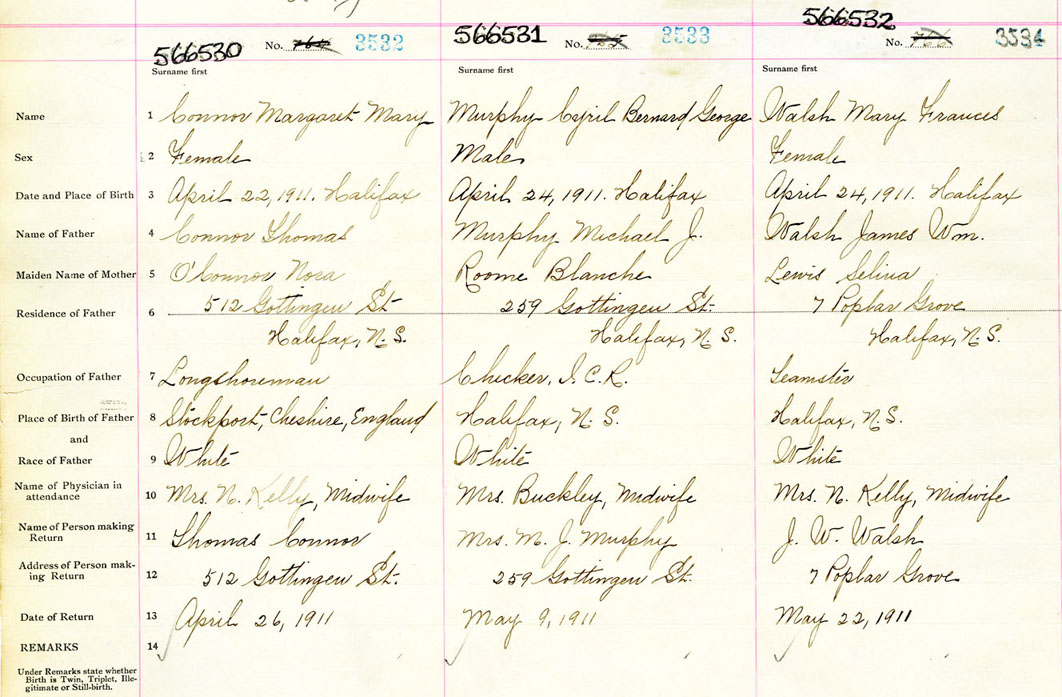 566530 No. 3532 566531 No. 3533 566532 No. 3534
Surname first Surname first Surname first
Name 1 Connor Margaret Mary Murphy Cyril Bernard George Walsh Mary Frances
Sex 2 Female Male Female
Date and Place of Birth 3 April 22, 1911. Halifax April 24, 1911. Halifax April 24, 1911. Halifax
Name of Father 4 Connor Thomas Murphy Michael J. Walsh James Wm.
Maiden Name of Mother 5 O'Connor Nora Roome Blanche Lewis Selina
Residence of Father 6 512 Gottingen St. 259 Gottingen St. 7 Poplar Grove
Halifax, N.S. Halifax, N.S. Halifax, N.S.
Occupation of Father 7 Longshoreman Checker, I.C.R. Teamster
Place of Birth of Father 8 Stockport, Cheshire, England Halifax, N.S. Halifax, N.S.
and
Race of Father 9 White White White
Name of Physician in attendance 10 Mrs. N. Kelly, Midwife Mrs. Buckley, Midwife Mrs. N. Kelly, Midwife
Name of Person making Return 11 Thomas Connor Mrs. M. J. Murphy J. W. Walsh
Address of Person mak-
ing Return 12 512 Gottingen St. 259 Gottingen St. 7 Poplar Grove
Date of Return 13 April 26, 1911 May 9, 1911 May 22, 1911
REMARKS 14
Under Remarks state whether
Birth is Twin, Triplet, Ille-
gitimate or Still-birth.